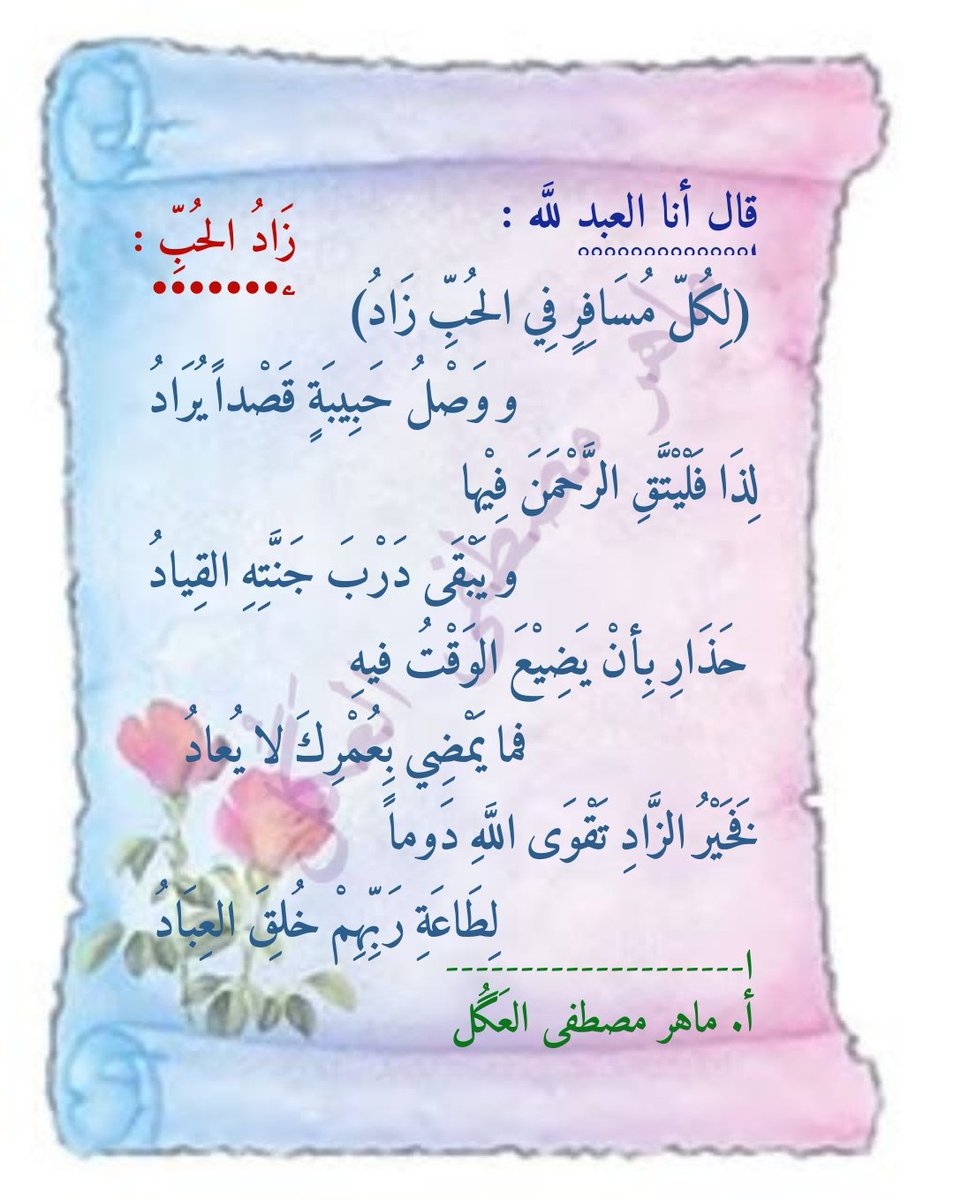 قال أنا العبد لله :
زَادُ الحُبِّ :
(لِكُلّ مُسَافِرٍ فِي الحُبِّ زَادُ)
و وَصْلُ حَبِيبَةٍ قَصْداً يُرَادُ
لِذَا فَلْيَتَّقِ الرَّحْمَنَ فِيْها
و يَبْقَى دَرْبَ جَنَّتِهِ القِيادُ
حَذَارِ بِأنْ يَضِيْعَ الوَقْتُ فيهِ
فما يَمْضِي بِعُمْرِكَ لا يُعادُ
فَخَيْرُ الزَّادِ تَقْوَى اللَّهِ دَوماً
لِطَاعَةِ رَبِّهِمْ خُلِقَ العِبَادُ
أ. ماهر مصطفى العَگُل
ماهر مصطفى العگل